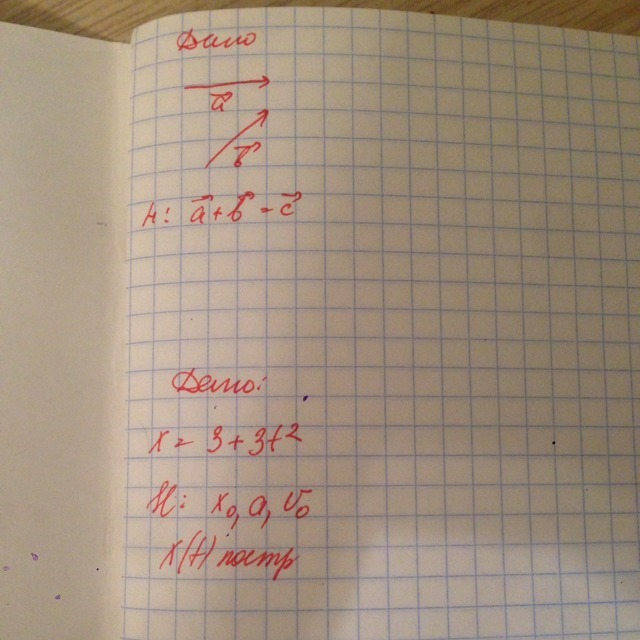 Дано
a⃗
b⃗
н: a⃗ + b⃗ - c⃗
Дано:
x = 3 + 3t²
Н: x₀, a, v₀
x(t) постр